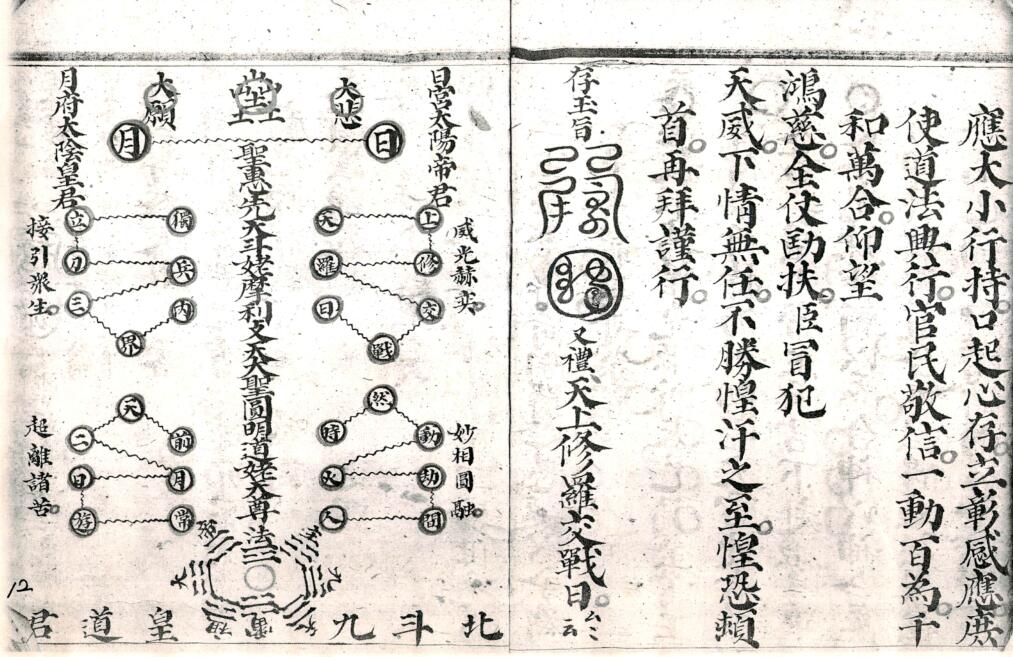 應大小行持口起心存立彰感應庶
使道法興行官民敬信一動百為千
和萬合仰望
鴻慈全仗扶臣冒犯
天威下情無任不勝惶汗之至惶恐頓
首再拜謹行
存玉旨
又禮天上修羅交戰日厶厶云
日宮太陽帝君
威光赫奕
妙相圓融
大悲
日
天上
羅修
日交
戰
然
時動
火劫
人間
聖惠先天斗姥摩利支天大聖圓明道姥天尊法
大願
月
立獨
刀兵
三內
界
天
二前
日月
遊常
月府太陰皇君
接引眾生
超離諸苦
北斗九皇道君
12